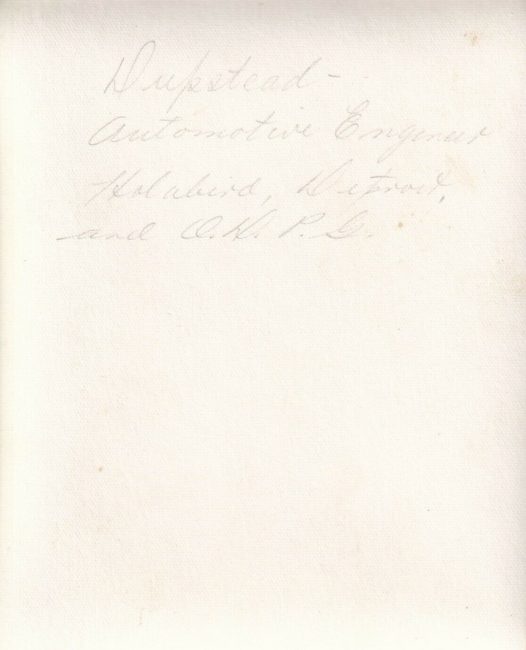 Dupstead -
Automotive Engineer
Holabird, Detroit,
and O.H. P. G.